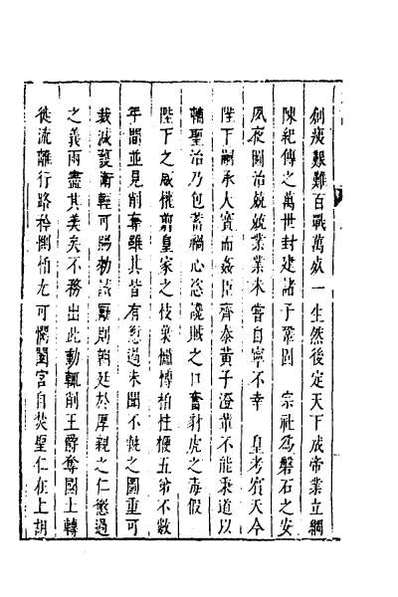 創痍艱難百戰萬死一生然後定天下成帝業立綱
陳紀傳之萬世封建諸子鞏固　宗社爲磐石之安
夙夜圖治兢兢業業未嘗自寧不幸　皇考賓天今
陛下嗣承大寶而姦臣齊泰黃子澄輩不能秉道以
輔聖治乃包蓄禍心恣讒賊之口奮豺虎之毒假
陛下之威權剪皇家之枝葉橚榑柏桂楩五弟不數
年間並見削奪雖其皆有愆過未聞不軌之圖重可
裁減護衛輕可賜勑詼則朝廷於厚親之仁懲過
之義兩盡其美矣不務出此動輒削王爵奪國土轉
徙流離行路矜惻柏尤可憫闔宮自焚聖仁在上胡